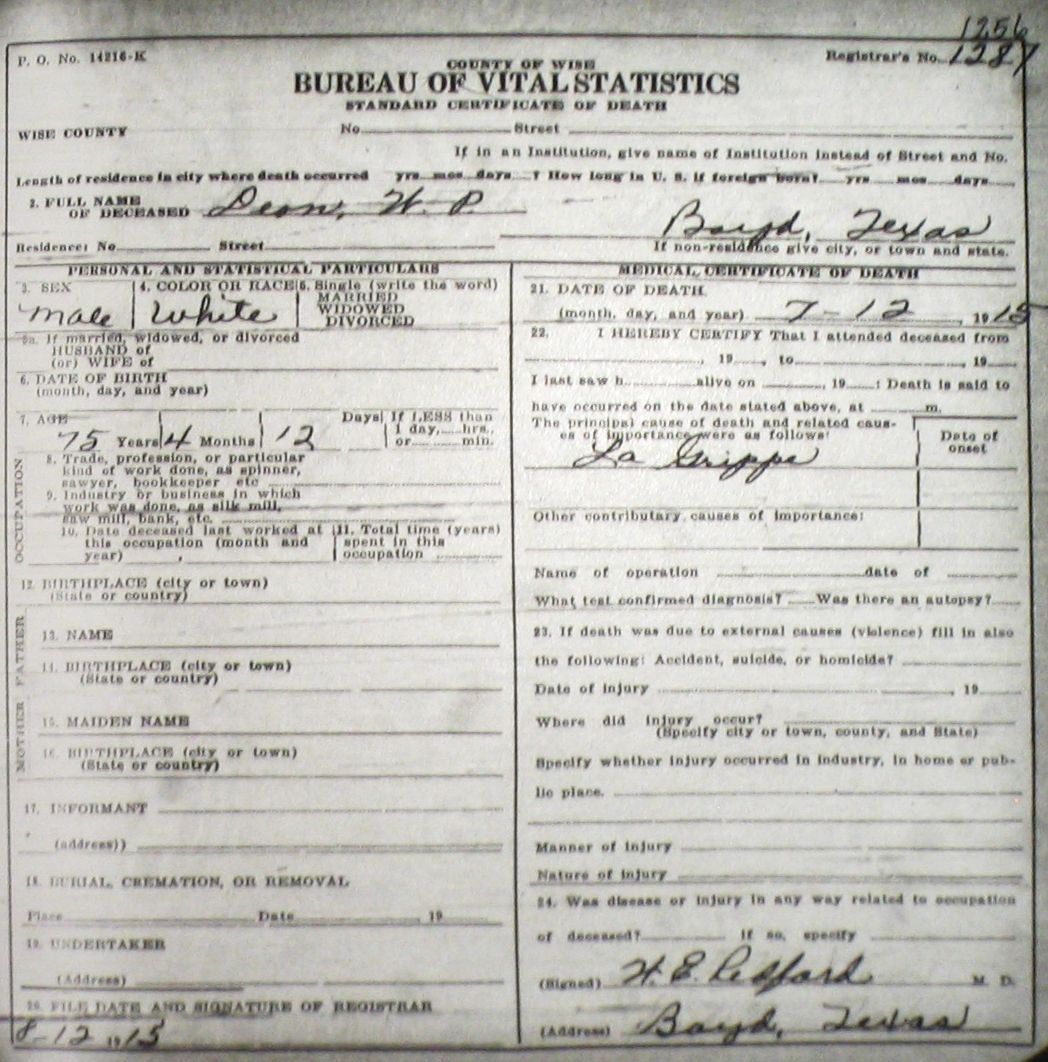 1256
P. O. No. 14216-K
Registrar's No. 1287
COUNTY OF WISE
BUREAU OF VITAL STATISTICS
STANDARD CERTIFICATE OF DEATH
WISE COUNTY No. Street
If in an Institution, give name of Institution instead of Street and No.
Length of residence in city where death occurred yrs mos days ? How long in U. S. if foreign born? yrs mos days
2. FULL NAME
OF DECEASED Deon, W. P.
Boyd, Texas
Residence: No. Street
If non-residence give city, or town and state.
PERSONAL AND STATISTICAL PARTICULARS
3. SEX
male
4. COLOR OR RACE
White
5. Single (write the word)
MARRIED
WIDOWED
DIVORCED
5a. If married, widowed, or divorced
HUSBAND of
(or) WIFE of
6. DATE OF BIRTH
(month, day, and year)
7. AGE
75 Years 4 Months 12 Days If LESS than
1 day, hrs.,
or min.
OCCUPATION
8. Trade, profession, or particular
kind of work done, as spinner,
sawyer, bookkeeper etc
9. Industry or business in which
work was done, as silk mill,
saw mill, bank, etc.
10. Date deceased last worked at
this occupation (month and
year)
11. Total time (years)
spent in this
occupation
12. BIRTHPLACE (city or town)
(State or country)
FATHER
13. NAME
14. BIRTHPLACE (city or town)
(State or country)
MOTHER
15. MAIDEN NAME
16. BIRTHPLACE (city or town)
(State or country)
17. INFORMANT
(address))
18. BURIAL, CREMATION, OR REMOVAL
Place Date 19
19. UNDERTAKER
(Address)
20. FILE DATE AND SIGNATURE OF REGISTRAR
8-12 1915
MEDICAL CERTIFICATE OF DEATH
21. DATE OF DEATH
(month, day, and year) 7-12, 1915
22. I HEREBY CERTIFY That I attended deceased from
, 19, to , 19
I last saw h alive on , 19 : Death is said to
have occurred on the date stated above, at m.
The principal cause of death and related caus-
es of importance were as follows:
Date of
onset
La Grippe
Other contributary causes of importance:
Name of operation date of
What test confirmed diagnosis? Was there an autopsy?
23. If death was due to external causes (violence) fill in also
the following: Accident, suicide, or homicide?
Date of injury , 19
Where did injury occur?
(Specify city or town, county, and State)
Specify whether injury occurred in industry, in home or pub-
lic place.
Manner of injury
Nature of injury
24. Was disease or injury in any way related to occupation
of deceased? If so, specify
(Signed) W. E. Redford M. D.
(Address) Boyd, Texas